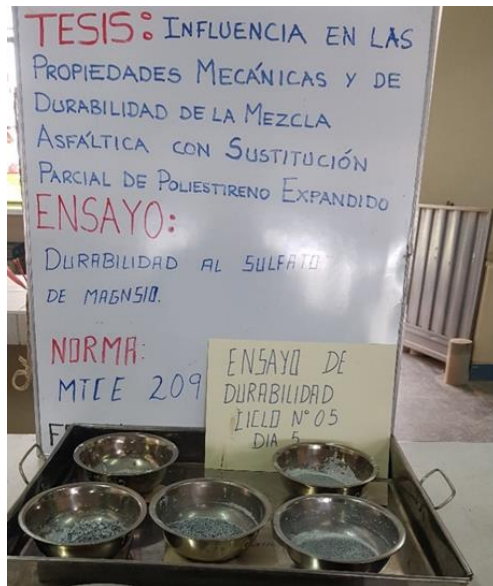 TESIS: INFLUENCIA EN LAS
PROPIEDADES MECÁNICAS Y DE
DURABILIDAD DE LA MEZCLA
ASFÁLTICA CON SUSTITUCIÓN
PARCIAL DE POLIESTIRENO EXPANDIDO
ENSAYO:
DURABILIDAD AL SULFATO
DE MAGNSIO.
NORMA:
MTCE 209
ENSAYO DE
DURABILIDAD
CICLO N° 05
DIA 5